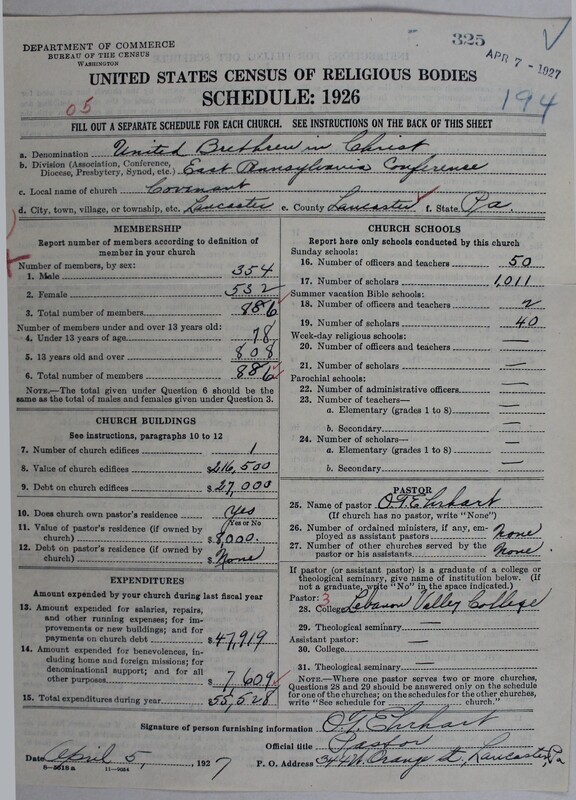 DEPARTMENT OF COMMERCE
BUREAU OF THE CENSUS
WASHINGTON
325
APR 7 - 1927
194
UNITED STATES CENSUS OF RELIGIOUS BODIES
SCHEDULE: 1926
05
FILL OUT A SEPARATE SCHEDULE FOR EACH CHURCH. SEE INSTRUCTIONS ON THE BACK OF THIS SHEET
a. Denomination United Brethren in Christ
b. Division (Association, Conference, Diocese, Presbytery, Synod, etc.) East Pennsylvania Conference
c. Local name of church Covenant
d. City, town, village, or township, etc. Lancaster e. County Lancaster f. State Pa.
MEMBERSHIP
Report number of members according to definition of
member in your church
Number of members, by sex:
1. Male 354
2. Female 532
3. Total number of members 886
Number of members under and over 13 years old:
4. Under 13 years of age 78
5. 13 years old and over 808
6. Total number of members 886
NOTE.—The total given under Question 6 should be
same as the total of males and females given under Question 3.
CHURCH BUILDINGS
See instructions, paragraphs 10 to 12
7. Number of church edifices 1
8. Value of church edifices $216,500
9. Debt on church edifices $27,000
10. Does church own pastor's residence? yes
Yes or No
11. Value of pastor's residence (if owned by
church) $8,000
12. Debt on pastor's residence (if owned by
church) $None
EXPENDITURES
Amount expended by your church during last fiscal year
13. Amount expended for salaries, repairs,
and other running expenses; for im-
provements or new buildings; and for
payments on church debt $47,919
14. Amount expended for benevolences,
including home and foreign missions; for
denominational support; and for all
other purposes $7,609
15. Total expenditures during year $55,528
CHURCH SCHOOLS
Report here only schools conducted by this church
Sunday schools:
16. Number of officers and teachers 50
17. Number of scholars 1,011
Summer vacation Bible schools:
18. Number of officers and teachers 2
19. Number of scholars 40
Week-day religious schools:
20. Number of officers and teachers —
21. Number of scholars —
Parochial schools:
22. Number of administrative officers —
23. Number of teachers—
a. Elementary (grades 1 to 8) —
b. Secondary —
24. Number of scholars—
a. Elementary (grades 1 to 8) —
b. Secondary —
PASTOR
25. Name of pastor O.T. Ehrhart
(If church has no pastor, write "None")
26. Number of ordained ministers, if any, em-
ployed as assistant pastors None
27. Number of other churches served by the
pastor or his assistants None.
If pastor (or assistant pastor) is a graduate of a college or
theological seminary, give name of institution below. (If
not a graduate, write "No" in the space indicated.)
Pastor: 3
28. College Lebanon Valley College
29. Theological seminary —
Assistant pastor:
30. College —
31. Theological seminary —
NOTE.—Where one pastor serves two or more churches,
Questions 28 and 29 should be answered only on the schedule
for one of the churches; on the schedules for the other churches,
write "See schedule for church."
Signature of person furnishing information O.T. Ehrhart
Official title Pastor
Date April 5, 1927 P. O. Address 344 N. Orange St., Lancaster, Pa
8-5518a 11-9064